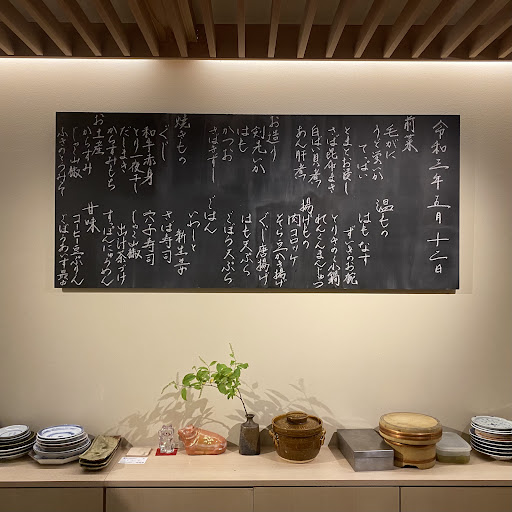 令和三年五月十二日
前菜
毛がに
うど蛍いか
てっぱい
とまとお浸し
さば昆布〆
白ばい貝煮
あん肝煮
お造り
剣先いか
はも
かつお
さばきずし
ぐじ
焼きもの
ぐじ
とり一夜干し
和牛赤身
だしまき
からすみもち
お土産
からすみ
じゃこ山椒
温もの
はも なす
ずいきのお椀
とりきのこ小鍋
れんこんまんじゅう
揚げもの
肉コロッケ
そら豆かき揚げ
ぐじ唐揚げ
はも天ぷら
ごぼう天ぷら
ごはん
新生姜
いわしと
さば寿司
穴子寿司
じゃこ山椒
出汁茶づけ
すっぽんにゅうめん
甘味
コーヒー豆かん